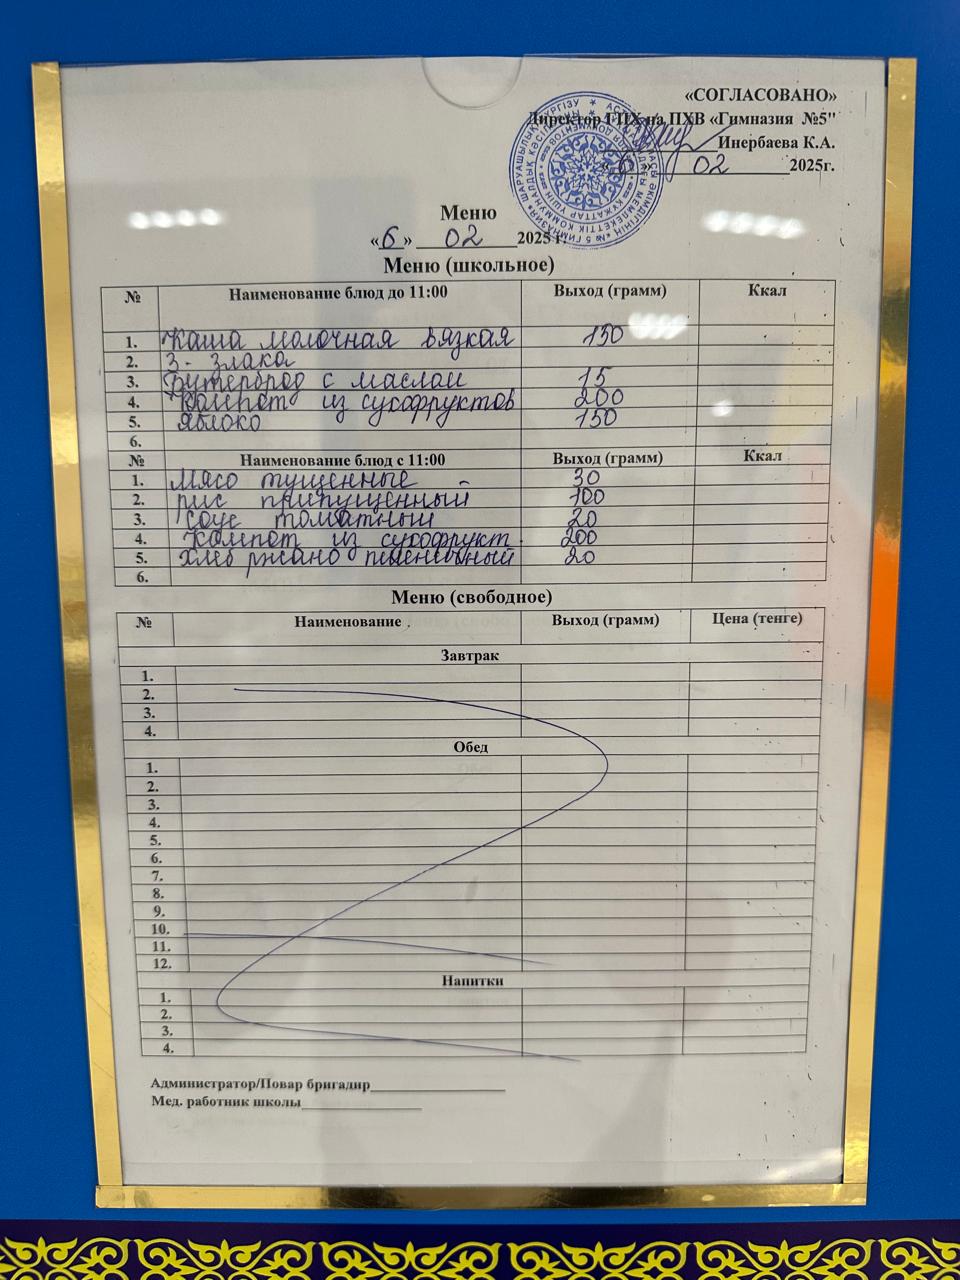 «СОГЛАСОВАНО»
Директор ГПХ на ПХВ «Гимназия №5"
Инербаева К.А.
«6» 02 2025г.
Меню
«6» 02 2025 г.
Меню (школьное)
№ Наименование блюд до 11:00 Выход (грамм) Ккал
1. Каша молочная вязкая 150
2. 3 - злака
3. Бутерброд с маслом 15
4. Компот из сухофруктов 200
5. Яблоко 150
6.
№ Наименование блюд с 11:00 Выход (грамм) Ккал
1. Мясо тущенные 30
2. рис припущенный 100
3. Соус томатный 20
4. Компот из сухофрукт. 200
5. Хлеб ржано пшеничный 20
6.
Меню (свободное)
№ Наименование Выход (грамм) Цена (тенге)
Завтрак
1.
2.
3.
4.
Обед
1.
2.
3.
4.
5.
6.
7.
8.
9.
10.
11.
12.
Напитки
1.
2.
3.
4.
Администратор/Повар бригадир
Мед. работник школы